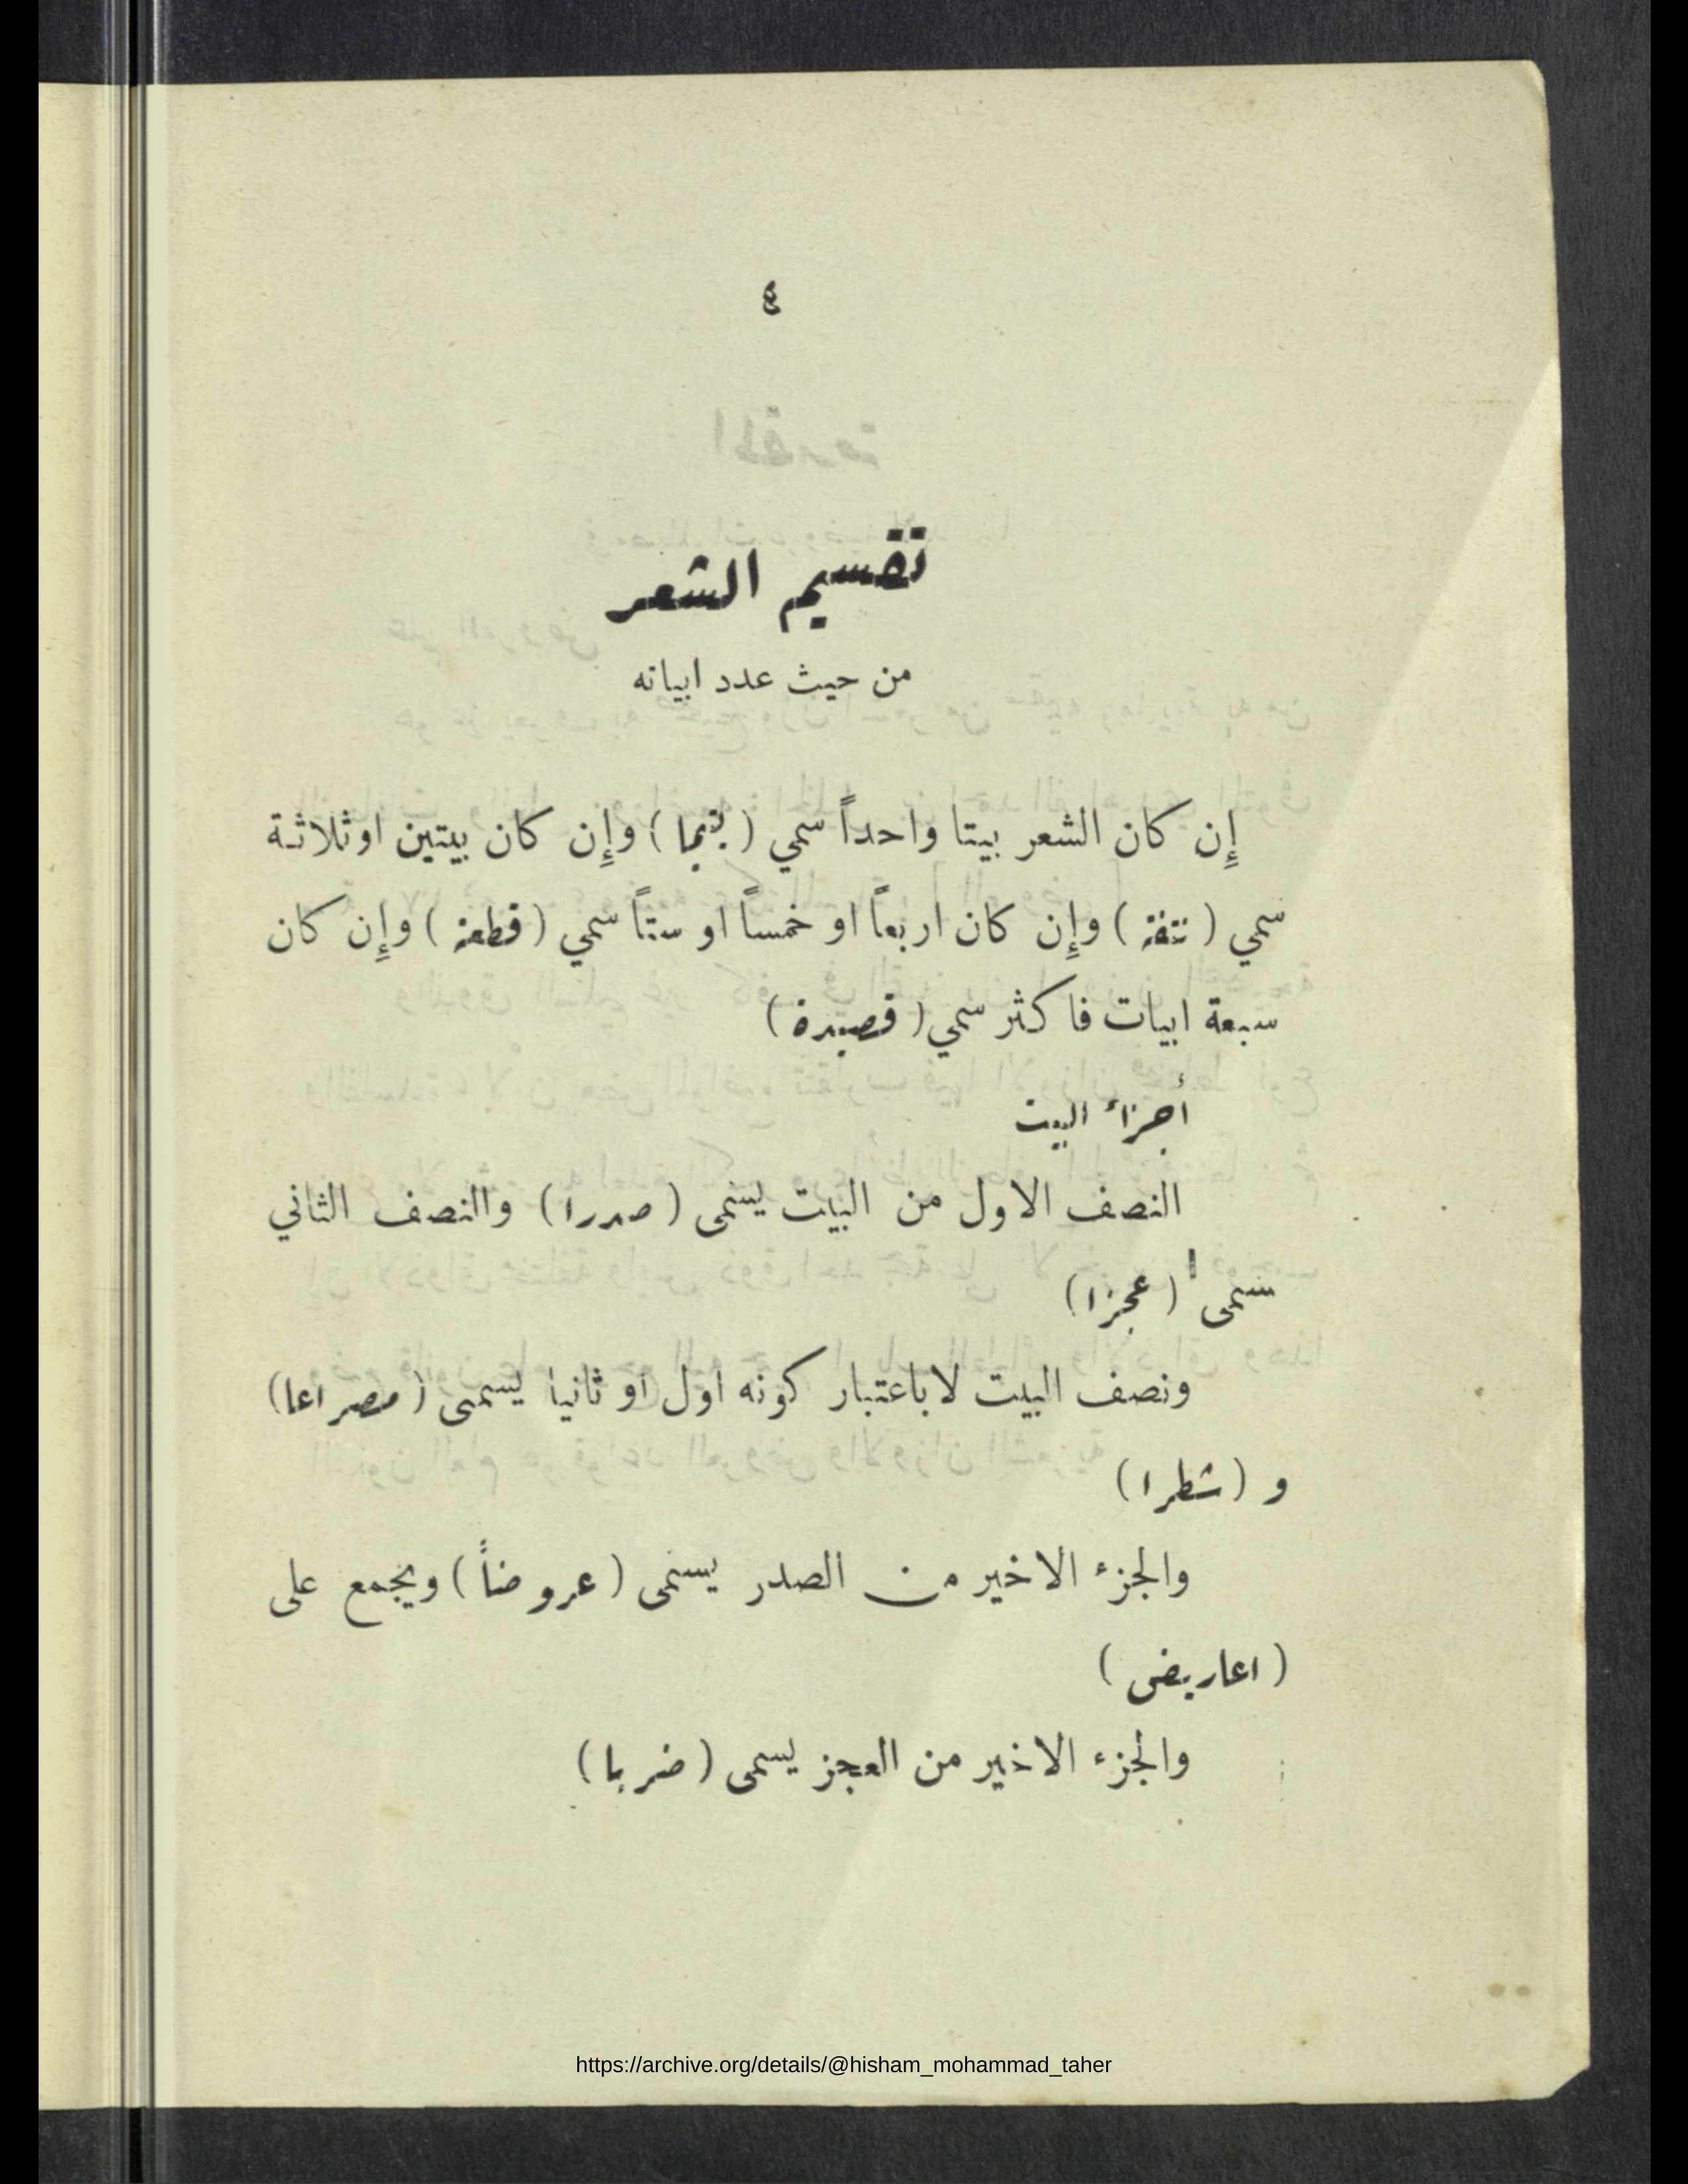 ٤
تقسيم الشعر
من حيث عدد ابياته
إِن كان الشعر بيتا واحداً سمي ( يتيما ) وإِن كان بيتين او ثلاثة
سمي ( نتفة ) وإِن كان اربعاً او خمساً او ستاً سمي ( قطعة ) وإِن كان
سبعة ابيات فاكثر سمي ( قصيدة )
أجزاء البيت
النصف الاول من البيت يسمى ( صدرا ) والنصف الثاني
سمى ( عجزا )
ونصف البيت لا باعتبار كونه اول او ثانيا يسمى ( مصراعا )
و ( شطرا )
والجزء الاخير من الصدر يسمى ( عروضاً ) ويجمع على
( اعاريض )
والجزء الاخير من العجز يسمى ( ضربا )
https://archive.org/details/@hisham_mohammad_taher